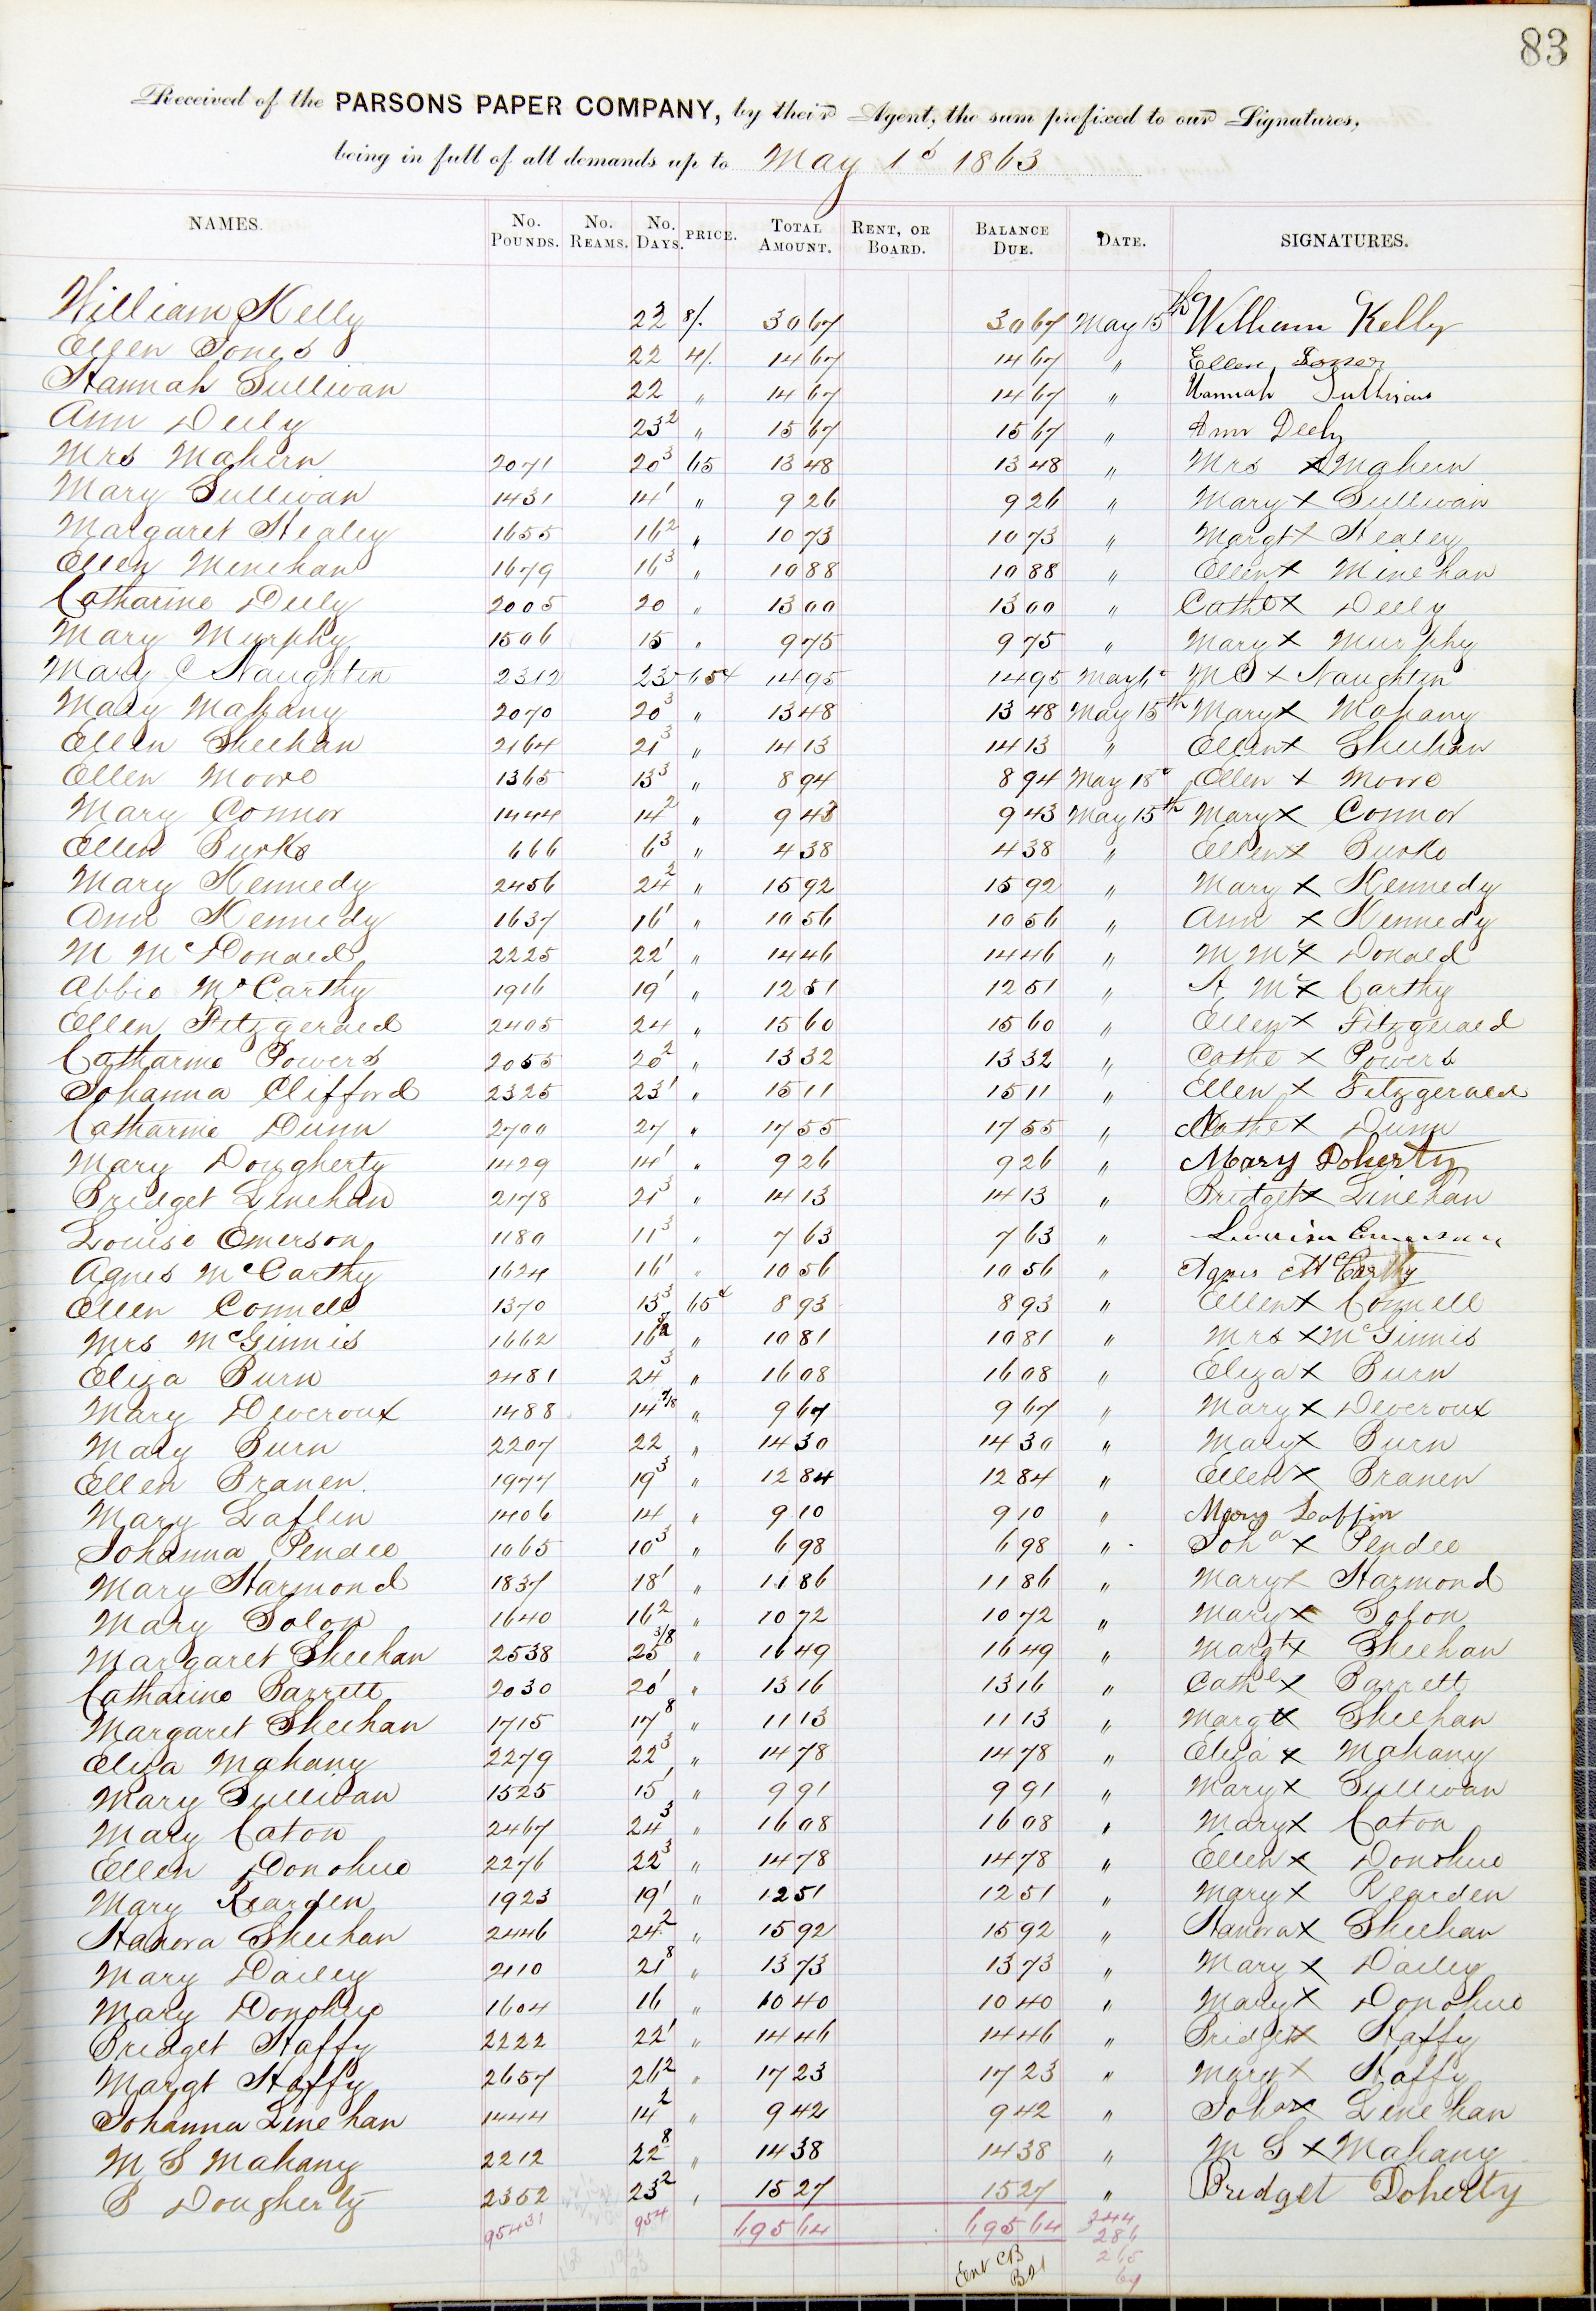 83
Received of the PARSONS PAPER COMPANY, by their Agent, the sum prefixed to our Signatures,
being in full of all demands up to May 1st 1863
NAMES. No. POUNDS. No. REAMS. No. DAYS. PRICE. TOTAL AMOUNT. RENT, OR BOARD. BALANCE DUE. DATE. SIGNATURES.
William Kelly 23 8/. 30 67 30 67 May 15th William Kelly
Ellen Jones 22 4/. 14 67 14 67 " Ellen Jones
Hannah Sullivan 22 " 14 67 14 67 " Hannah Sullivan
Ann Deely 23 2 " 15 67 15 67 " Ann Deely
Mrs Mahern 2071 20 3 65 13 48 13 48 " Mrs X Mahern
Mary Sullivan 1431 14 1 " 9 26 9 26 " Mary X Sullivan
Margaret Healey 1655 16 2 " 10 73 10 73 " Margt X Healey
Ellen Minehan 1679 16 3 " 10 88 10 88 " Ellen X Minehan
Catharine Deely 2005 20 " 13 00 13 00 " Cathe X Deely
Mary Murphy 1506 15 " 9 75 9 75 " Mary X Murphy
Mary C Naughten 2312 23 65¢ 14 95 14 95 May 6" M C X Naughten
Mary Mahany 2070 20 3 " 13 48 13 48 May 15th Mary X Mahany
Ellen Sheehan 2164 21 3 " 14 13 14 13 " Ellen X Sheehan
Ellen Moore 1365 13 3 " 8 94 8 94 May 18" Ellen X Moore
Mary Connor 1444 14 2 " 9 43 9 43 May 15th Mary X Connor
Ellen Burke 666 6 3 " 4 38 4 38 " Ellen X Burke
Mary Kennedy 2456 24 2 " 15 92 15 92 " Mary X Kennedy
Ann Kennedy 1637 16 1 " 10 56 10 56 " Ann X Kennedy
M McDonald 2225 22 1 " 14 46 14 46 " M Mc X Donald
Abbie McCarthy 1916 19 1 " 12 51 12 51 " A Mc X Carthy
Ellen Fitzgerald 2405 24 " 15 60 15 60 " Ellen X Fitzgerald
Catharine Powers 2055 20 2 " 13 32 13 32 " Cathe X Powers
Johanna Clifford 2325 23 1 " 15 11 15 11 " Ellen X Fitzgerald
Catharine Dunn 2700 27 " 17 55 17 55 " Cathe X Dunn
Mary Dougherty 1429 14 1 " 9 26 9 26 " Mary Doherty
Bridget Linehan 2178 21 3 " 14 13 14 13 " Bridget X Linehan
Louise Emerson 1180 11 3 " 7 63 7 63 " Louisa Emerson
Agnes McCarthy 1624 16 1 " 10 56 10 56 " Agnes McCarthy
Ellen Connell 1370 13 3 65¢ 8 93 8 93 " Ellen X Connell
Mrs McGinnis 1662 16 " 10 81 10 81 " Mrs X McGinnis
Eliza Burn 2481 24 3 " 16 08 16 08 " Eliza X Burn
Mary Deveroux 1488 14 7/8 " 9 67 9 67 " Mary X Deveroux
Mary Burn 2207 22 " 14 30 14 30 " Mary X Burn
Ellen Branen 1977 19 3 " 12 84 12 84 " Ellen X Branen
Mary Laflin 1406 14 " 9 10 9 10 " Mary Laffin
Johanna Pendee 1065 10 3 " 6 98 6 98 " Joha X Pendee
Mary Harmond 1837 18 1 " 11 86 11 86 " Mary X Harmond
Mary Solon 1640 16 2 " 10 72 10 72 " Mary X Solon
Margaret Sheehan 2538 25 3/8 " 16 49 16 49 " Margt X Sheehan
Catharine Barrett 2030 20 1 " 13 16 13 16 " Cathe X Barrett
Margaret Sheehan 1715 17 8 " 11 13 11 13 " Margt X Sheehan
Eliza Mahany 2279 22 3 " 14 78 14 78 " Eliza X Mahany
Mary Sullivan 1525 15 1 " 9 91 9 91 " Mary X Sullivan
Mary Caton 2467 24 3 " 16 08 16 08 " Mary X Caton
Ellen Donohue 2276 22 3 " 14 78 14 78 " Ellen X Donohue
Mary Rearden 1923 19 1 " 12 51 12 51 " Mary X Rearden
Hanora Sheehan 2446 24 2 " 15 92 15 92 " Hanora X Sheehan
Mary Dailey 2110 21 8 " 13 73 13 73 " Mary X Dailey
Mary Donohue 1604 16 " 10 40 10 40 " Mary X Donohue
Bridget Haffy 2222 22 1 " 14 46 14 46 " Bridget X Haffy
Margt Haffy 2657 26 2 " 17 23 17 23 " Margt X Haffy
Johanna Linehan 1444 14 2 " 9 42 9 42 " Joha X Linehan
M S Mahany 2212 22 8 " 14 38 14 38 " M S X Mahany
B Dougherty 2352 23 2 " 15 27 15 27 " Bridget Doherty
95431 954 695 64 695 64 344
286
265
Ent CB
B21